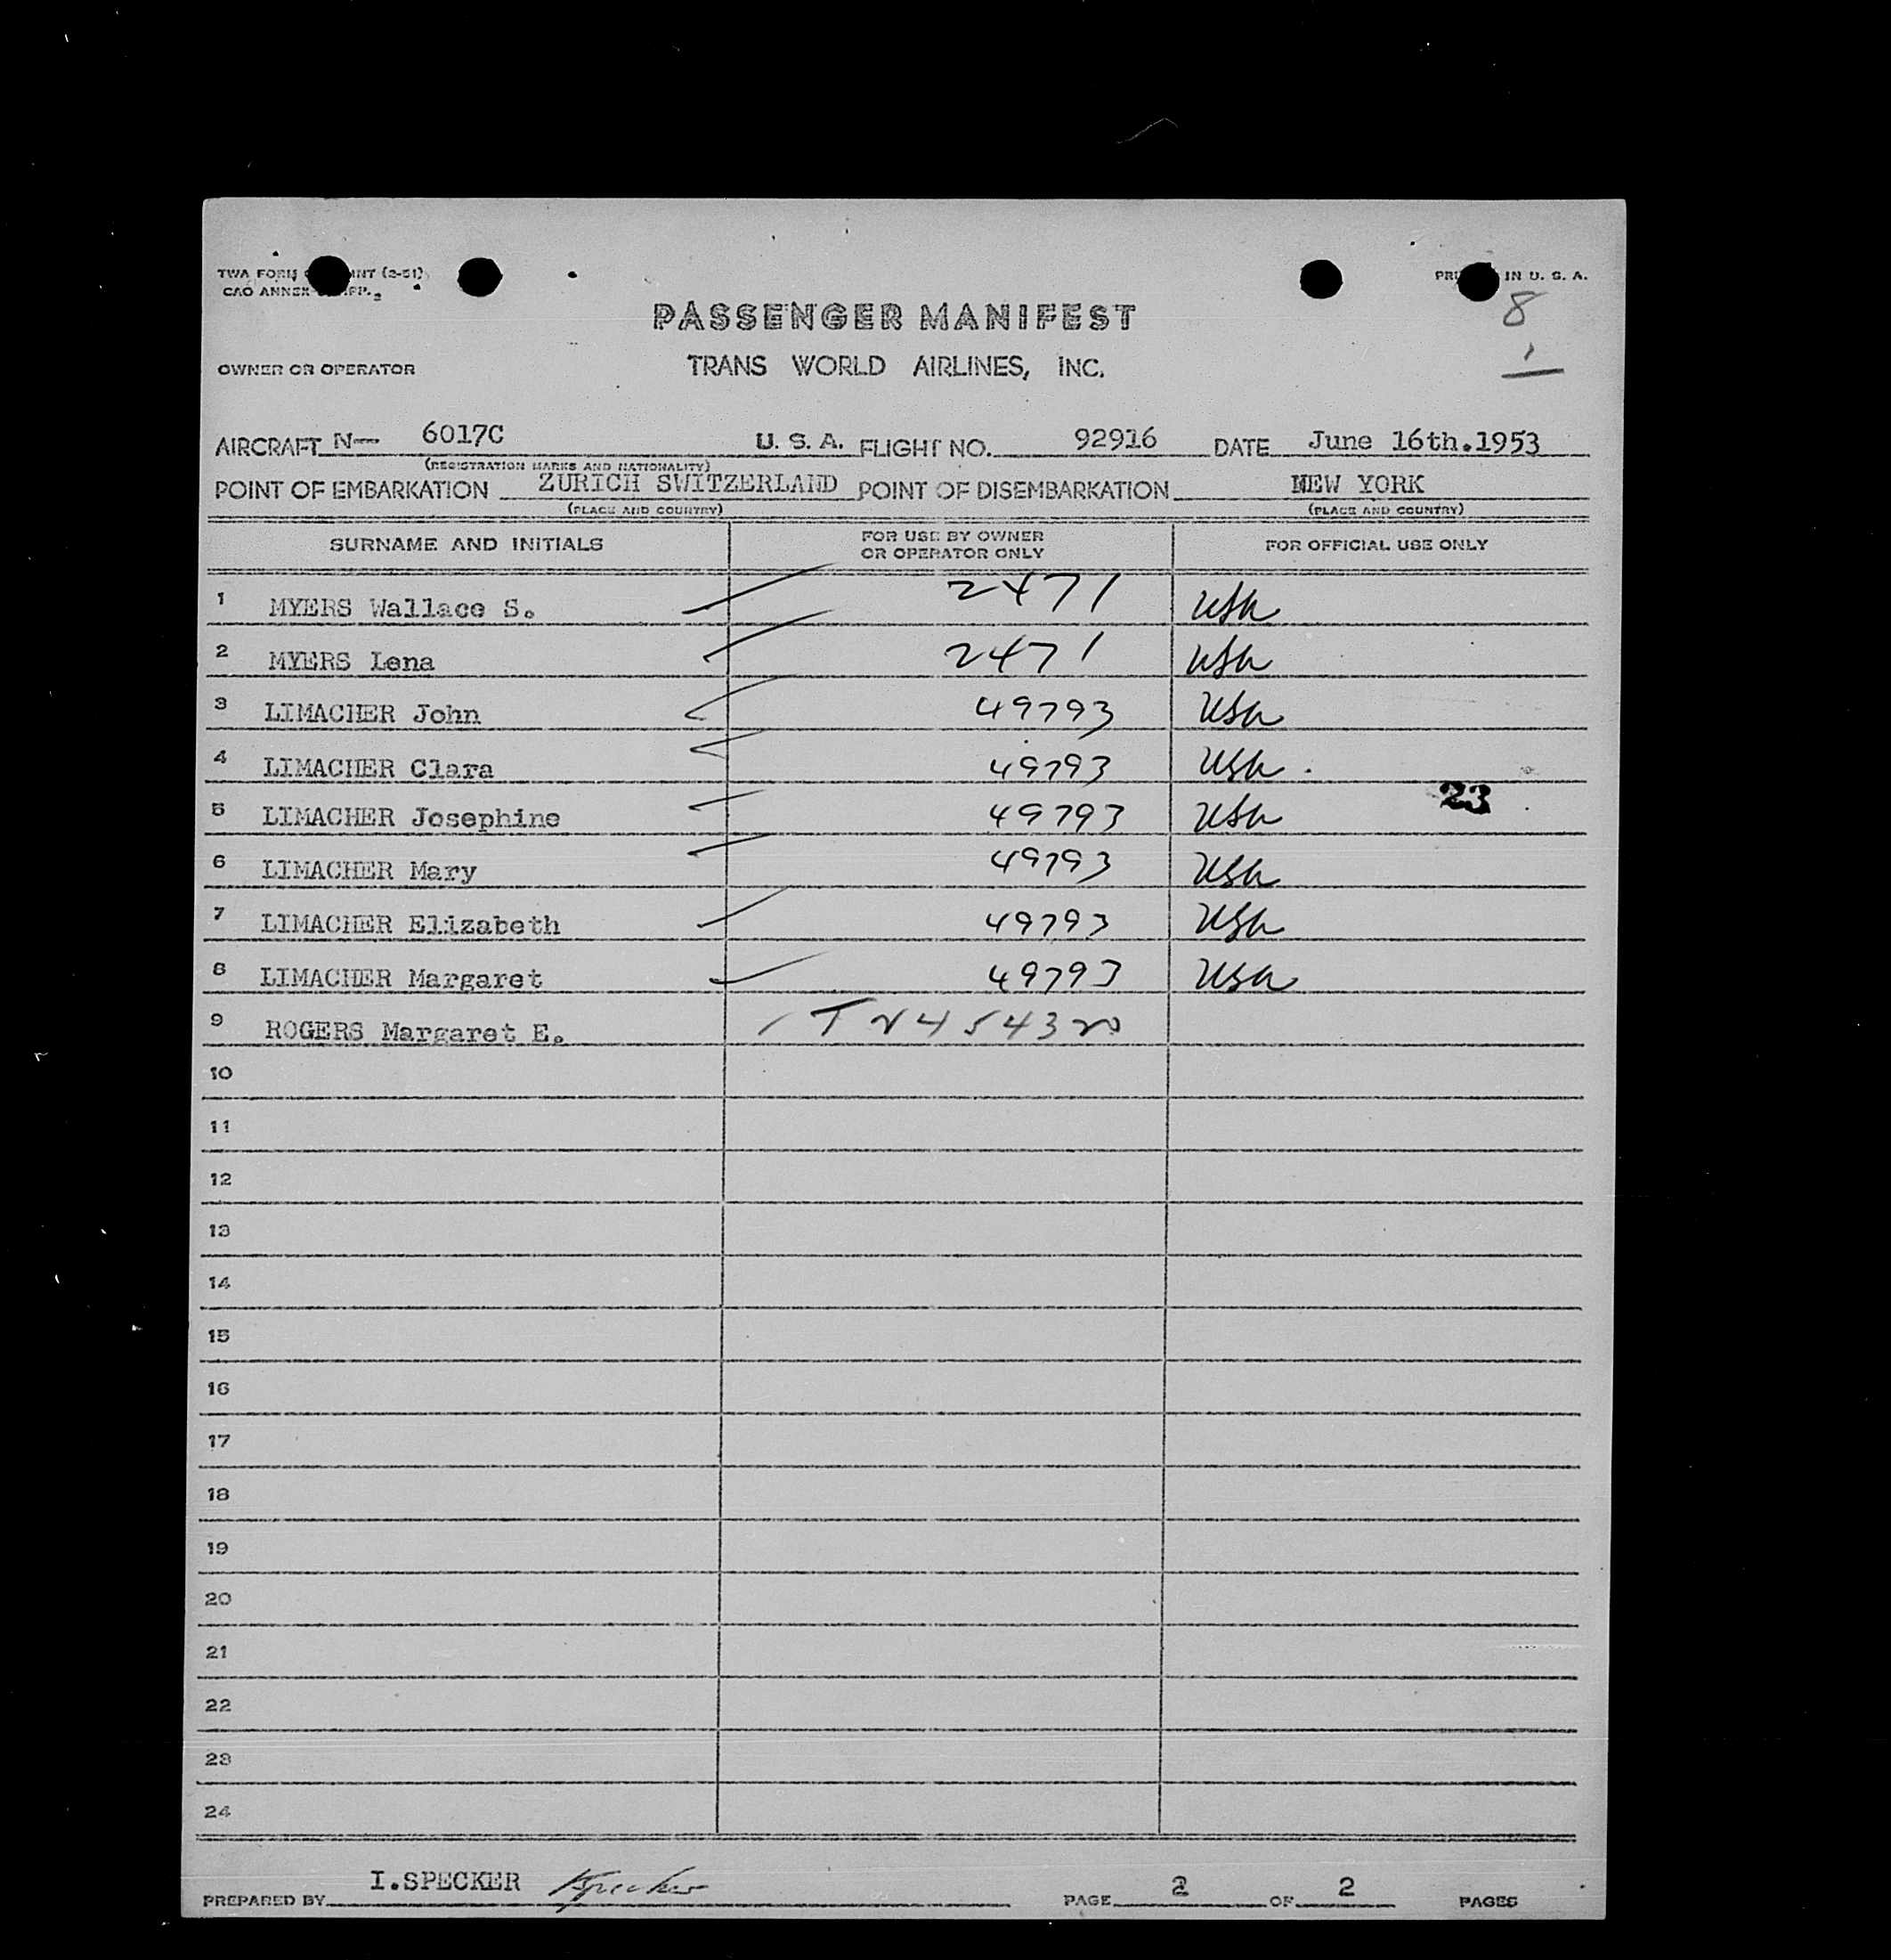 TWA FORM INT (2-51) PRI IN U. S. A.
CAO ANNEX
8
PASSENGER MANIFEST
OWNER OR OPERATOR TRANS WORLD AIRLINES, INC.
AIRCRAFT N— 6017C U. S. A. FLIGHT NO. 92916 DATE June 16th.1953
(REGISTRATION MARKS AND NATIONALITY)
POINT OF EMBARKATION ZURICH SWITZERLAND POINT OF DISEMBARKATION NEW YORK
(PLACE AND COUNTRY) (PLACE AND COUNTRY)
SURNAME AND INITIALS FOR USE BY OWNER OR OPERATOR ONLY FOR OFFICIAL USE ONLY
1 MYERS Wallace S. 2471 USA
2 MYERS Lena 2471 USA
3 LIMACHER John 49793 USA
4 LIMACHER Clara 49793 USA.
5 LIMACHER Josephine 49793 USA 23
6 LIMACHER Mary 49793 USA
7 LIMACHER Elizabeth 49793 USA
8 LIMACHER Margaret 49793 USA
9 ROGERS Margaret E.
10
11
12
13
14
15
16
17
18
19
20
21
22
23
24
PREPARED BY I.SPECKER Specker PAGE 2 OF 2 PAGES